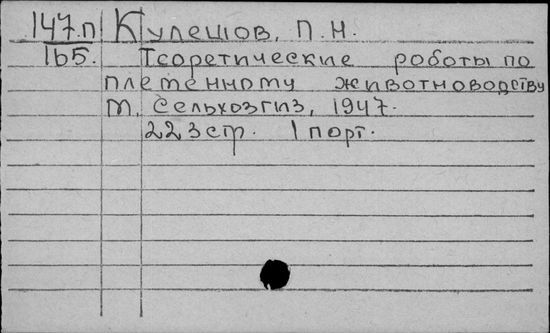 147.п Кулешов, П.Н.
165. Теоретические роботы по
племенному животноводству
М, Сельхозгиз, 1947.
223стр. 1 порт.